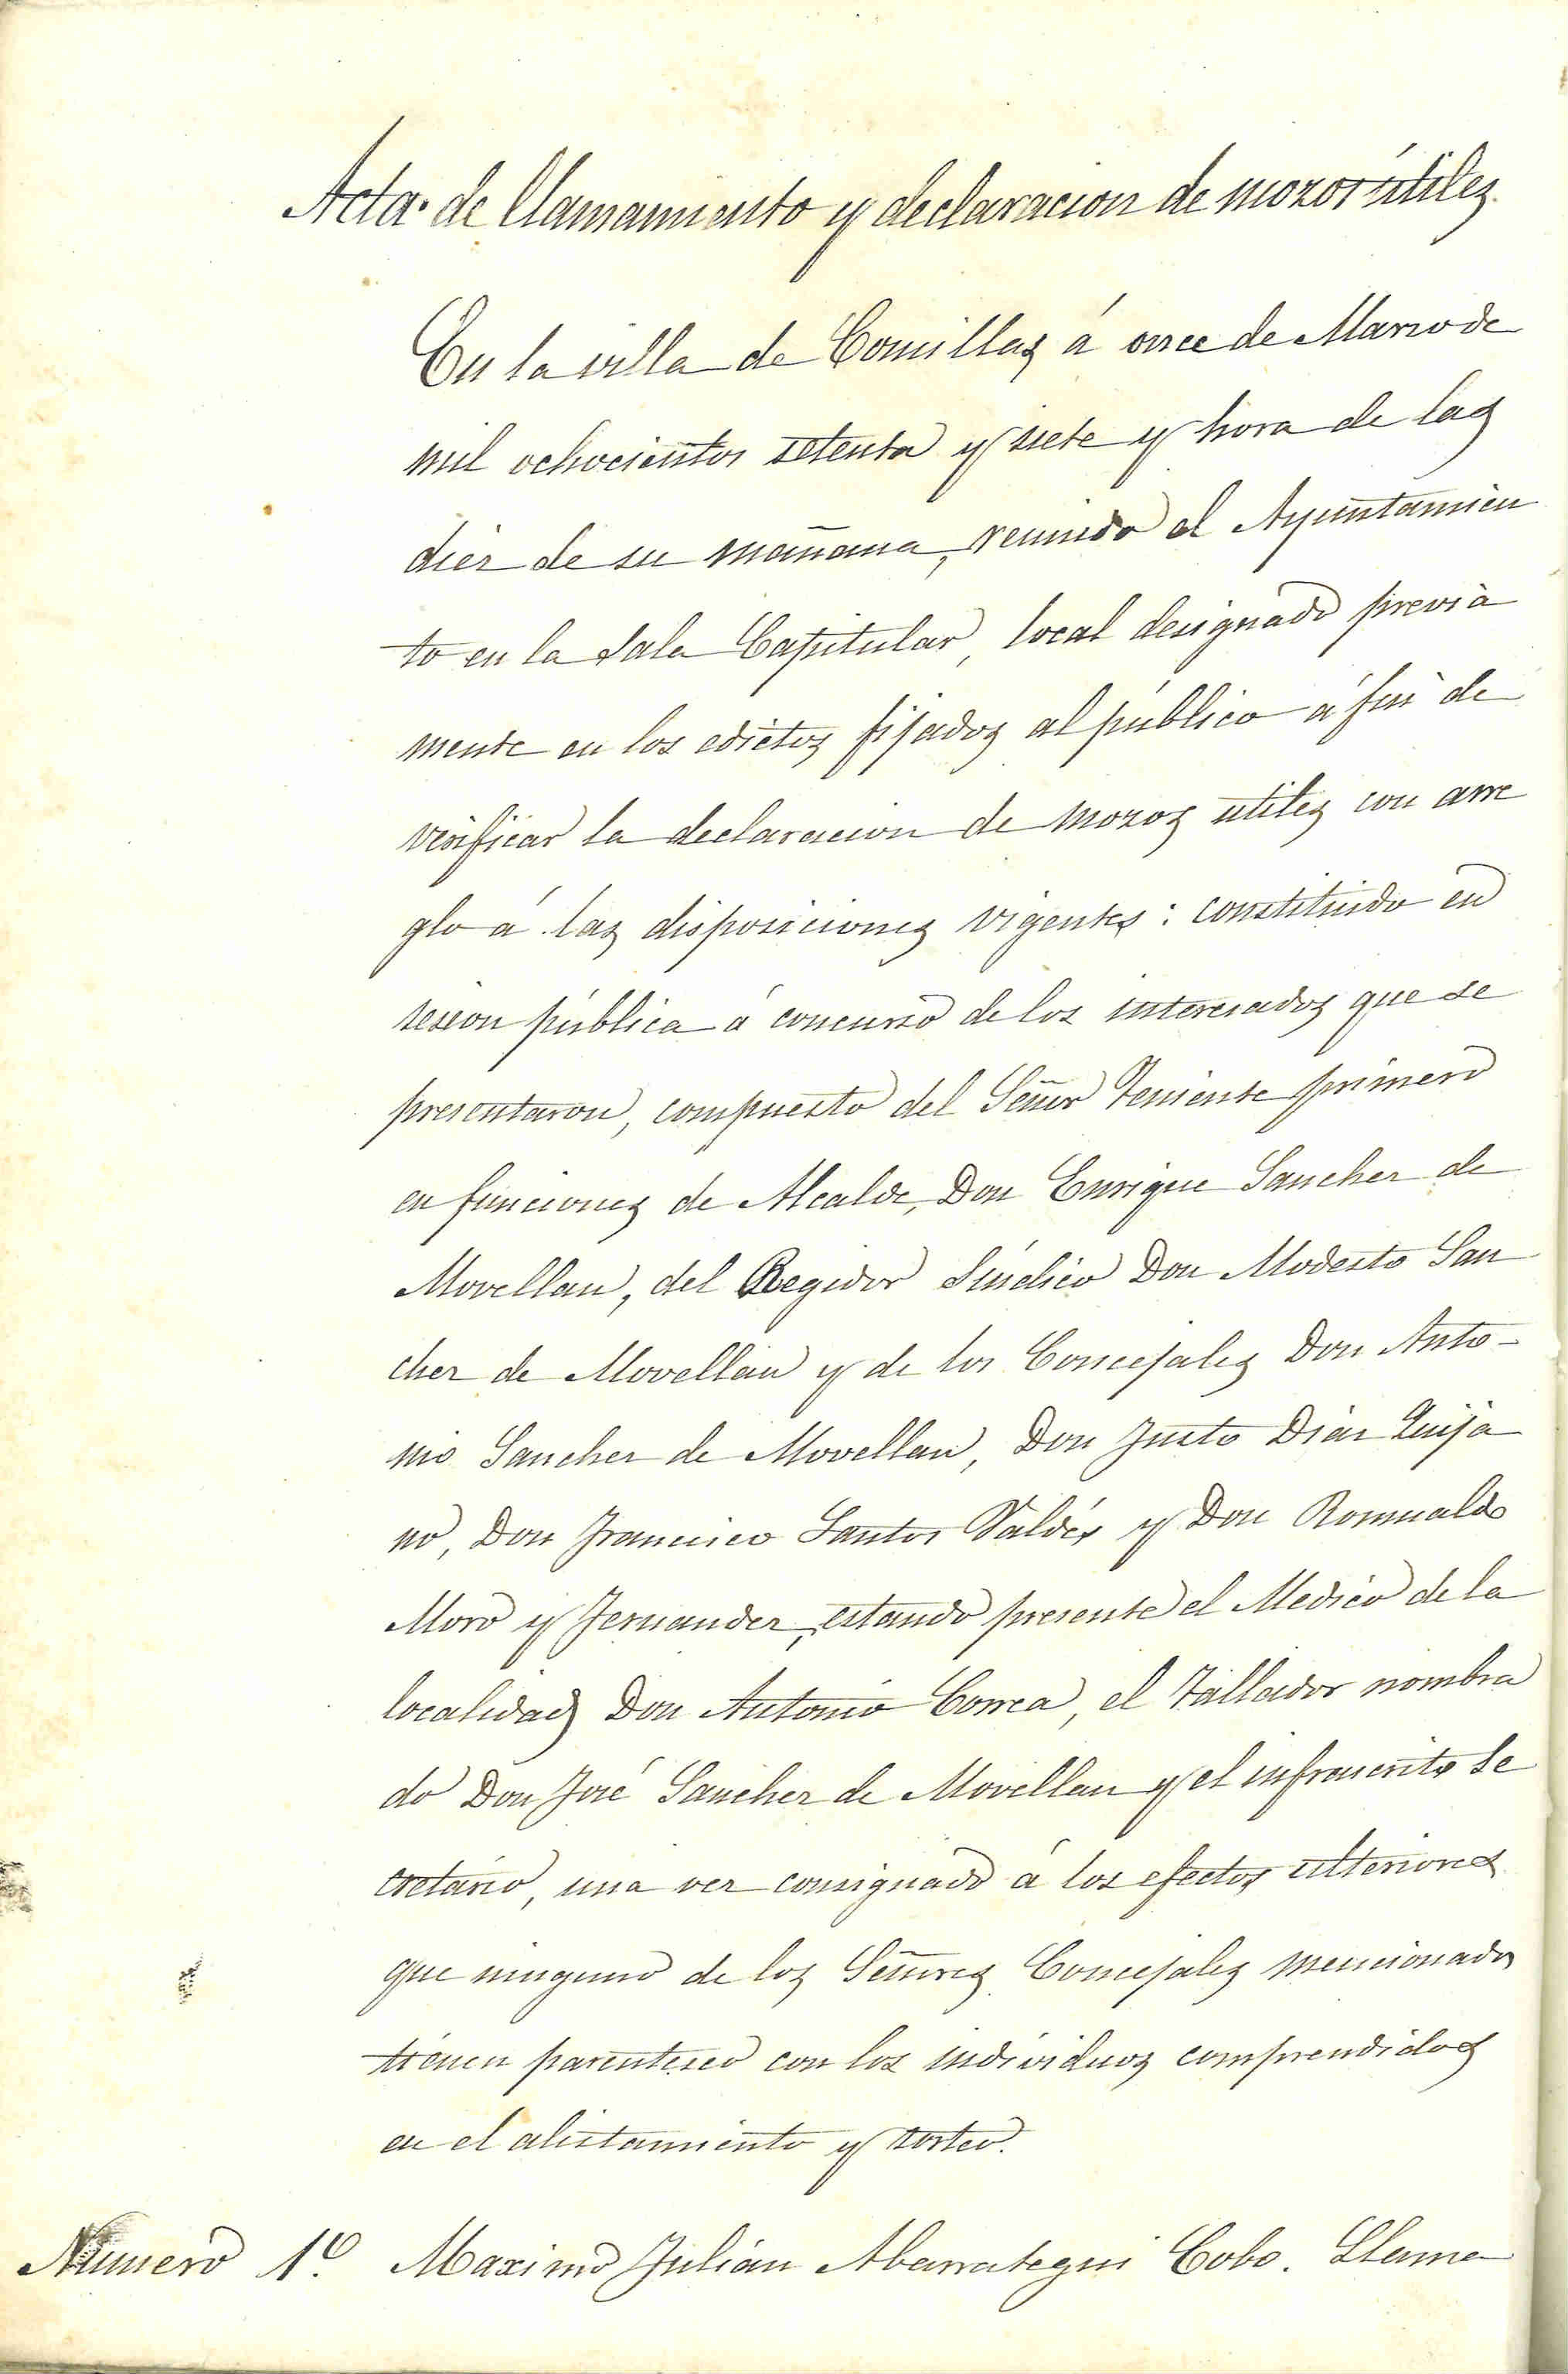 Acta de llamamiento y declaracion de mozos útiles.
En la villa de Comillas á once de Marzo de
mil ochocientos setenta y siete y hora de las
diez de su mañana, reunido el Ayuntamien
to en la Sala Capitular, local designado previa
mente en los edictos fijados al público á fin de
verificar la declaracion de mozos utiles con arre
glo á las disposiciones vigentes: constituido en
sesion pública á concurso de los interesados que se
presentaron, compuesto del Señor Teniente primero
en funciones de Alcalde, Don Enrique Sanchez de
Movellan, del Regidor Síndico Don Modesto San
chez de Movellan y de los Concejales Don Anto-
nio Sanchez de Movellan, Don Justo Diaz Quija
no, Don Francisco Santos Valdés y Don Romualdo
Moro y Fernandez, estando presente el Medico de la
localidad Don Antonio Correa, el Tallador nombra
do Don José Sanchez de Movellan y el infrascrito Se
cretario, una vez consignado á los efectos ulteriores
que ninguno de los Señores Concejales mencionados
tienen parentesco con los individuos comprendidos
en el alistamiento y sorteo.
Numero 1º. Maximo Julián Abarrategui Cobo. Llama